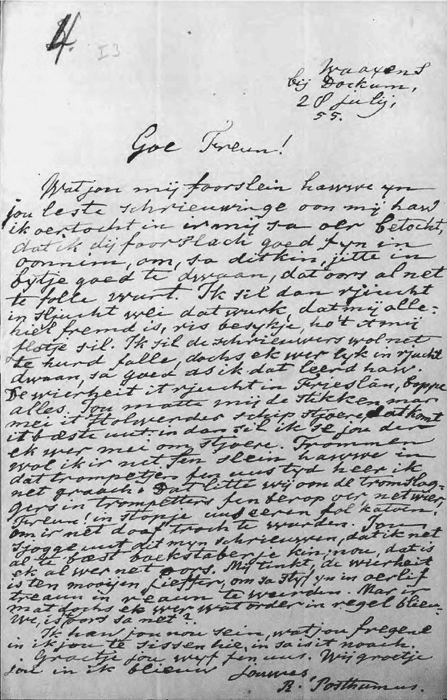 4.
I3
Waaxens
bij Dockum,
28 Julij,
55.
Goe Freun!
Wat jou mij foorslein hawwe yn
jou leste schrieuwinge oon mij haw
ik oertocht in ir mij sa oer betocht,
dat ik dij foorslach goed fyn in
oonnim, om, sa dit kin, jitte in
bytje goed te dwaan, dat oors al net
te folle wurt. Ik sil dan rjiucht
in sljucht wei dat wurk, dat mij alle-
hiel fremd is, ris besykje, ho't it mij
slotje sil. Ik sil de schrieuwers wol net
te hurd falle, dochs ek wer lyk in rjucht
dwaan, sa goed as ik dat leerd haw.
De wierheit it rjucht in Frieslân, boppe
alles. Jou matte mij de stikken mar
mei it Holwerder schip stjoere, dat komt
it bêste uut: in dan sil ik se jou den
ek wer mei om stjoere. Trommen
wol ik ir net fen slein hawwe in
dat trompetjen fen uus tyd heer ik
net graach: Dat litte wij oon de tromslag-
gers in trompetters fenderop oer net wier,
Freun! in stopje uus eeren fol katoen,
om ir net doaf troch te wurden. Jou
sjogge uut dit myn schrieuwen, dat ik net
al te bêest boekstaberje kin; nou, dat is
ek al wer net oors. Mij tinkt, de wierheit
is ten mooijen lieffter, om sa styf yn in oerlif
treaun in reaun te wurden. Mar ir
mat dochs ek wer wat order in regel blieu-
we, is oors sa net?
Ik haw jou nou sein, wat jou fregene
in ik jou te sissen hie, in sa is it noach.
Groetje jou wyf fen uus. Wij groetje
jou in ik blieuw Jouwes,
R. Posthumus.